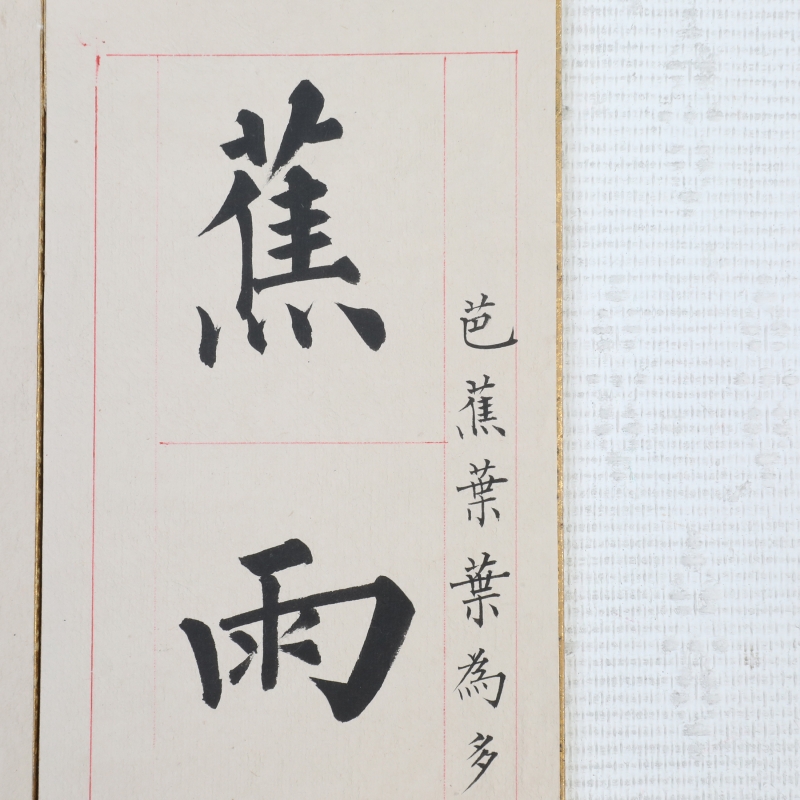 芭蕉葉葉為多
蕉雨